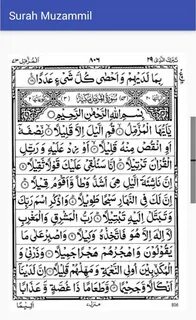 Surah Muzammil
تبٰرك الذی ٢٩ ٨٠٦ المزمل ٧٣
بِمَا لَدَيْهِمْ وَاَحْصٰى كُلَّ شَيْءٍ عَدَدًا
سُوْرَةُ الْمُزَّمِّلِ مَكِّيَّةٌ
بِسْمِ اللّٰهِ الرَّحْمٰنِ الرَّحِيْمِ
يٰٓاَيُّهَا الْمُزَّمِّلُ قُمِ الَّيْلَ اِلَّا قَلِيْلًا نِّصْفَهٗٓ
اَوِ انْقُصْ مِنْهُ قَلِيْلًا اَوْ زِدْ عَلَيْهِ وَرَتِّلِ
الْقُرْاٰنَ تَرْتِيْلًا اِنَّا سَنُلْقِيْ عَلَيْكَ قَوْلًا ثَقِيْلًا
اِنَّ نَاشِئَةَ الَّيْلِ هِيَ اَشَدُّ وَطْاً وَّاَقْوَمُ قِيْلًا
اِنَّ لَكَ فِي النَّهَارِ سَبْحًا طَوِيْلًا وَاذْكُرِ اسْمَ رَبِّكَ
وَتَبَتَّلْ اِلَيْهِ تَبْتِيْلًا رَبُّ الْمَشْرِقِ وَالْمَغْرِبِ
لَآ اِلٰهَ اِلَّا هُوَ فَاتَّخِذْهُ وَكِيْلًا وَاصْبِرْ عَلٰى مَا
يَقُوْلُوْنَ وَاهْجُرْهُمْ هَجْرًا جَمِيْلًا وَذَرْنِيْ وَ
الْمُكَذِّبِيْنَ اُولِي النَّعْمَةِ وَمَهِّلْهُمْ قَلِيْلًا اِنَّ لَدَيْنَآ
اَنْكَالًا وَّجَحِيْمًا وَّطَعَامًا ذَا غُصَّةٍ وَّعَذَابًا